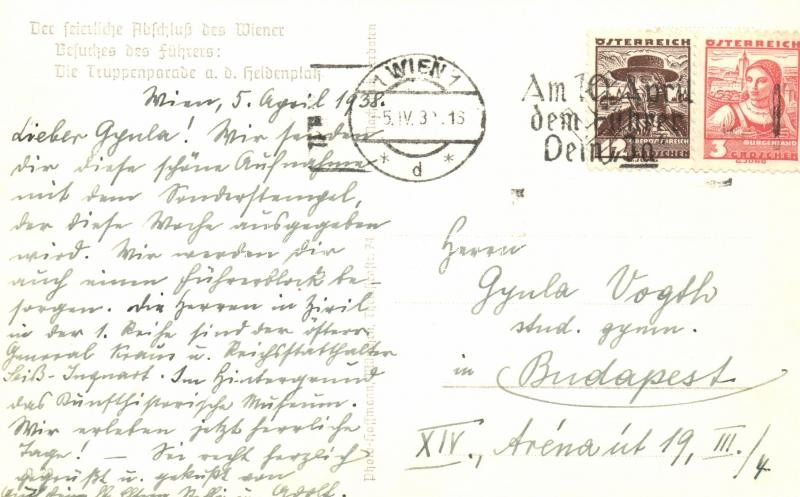 Der feierliche Abschluß des Wiener
Besuches des Führers:
Die Truppenparade a. d. Heldenplatz
Wien, 5. April 1938.
Lieber Gyula! Wir senden
dir diese schöne Aufnahme
mit dem Sonderstempel,
der diese Woche ausgegeben
wird. Wir werden Dir
auch einen Führerblock be-
sorgen. Die Herren in Zivil
in der 1. Reihe sind der österr.
General Kraus u. Reichsstatthalter
Seiß-Inquart. Im Hintergrund
das Kunsthistorische Museum.
Wir erleben jetzt herrliche
Tage! – Sei recht herzlich
gegrüßt u. geküßt von
Adolf.
Photo-Hoffmann
74
verboten
1 WIEN 1
5.IV.3 .16
* d *
Am 10. April
dem Führer
Dein „Ja“
ÖSTERREICH
GROSCHEN
ÖSTERREICH
BURGENLAND
3
GROSCHEN
Herrn
Gyula Vogth
stud. gymn.
in Budapest
XIV., Aréna út 19, III./4